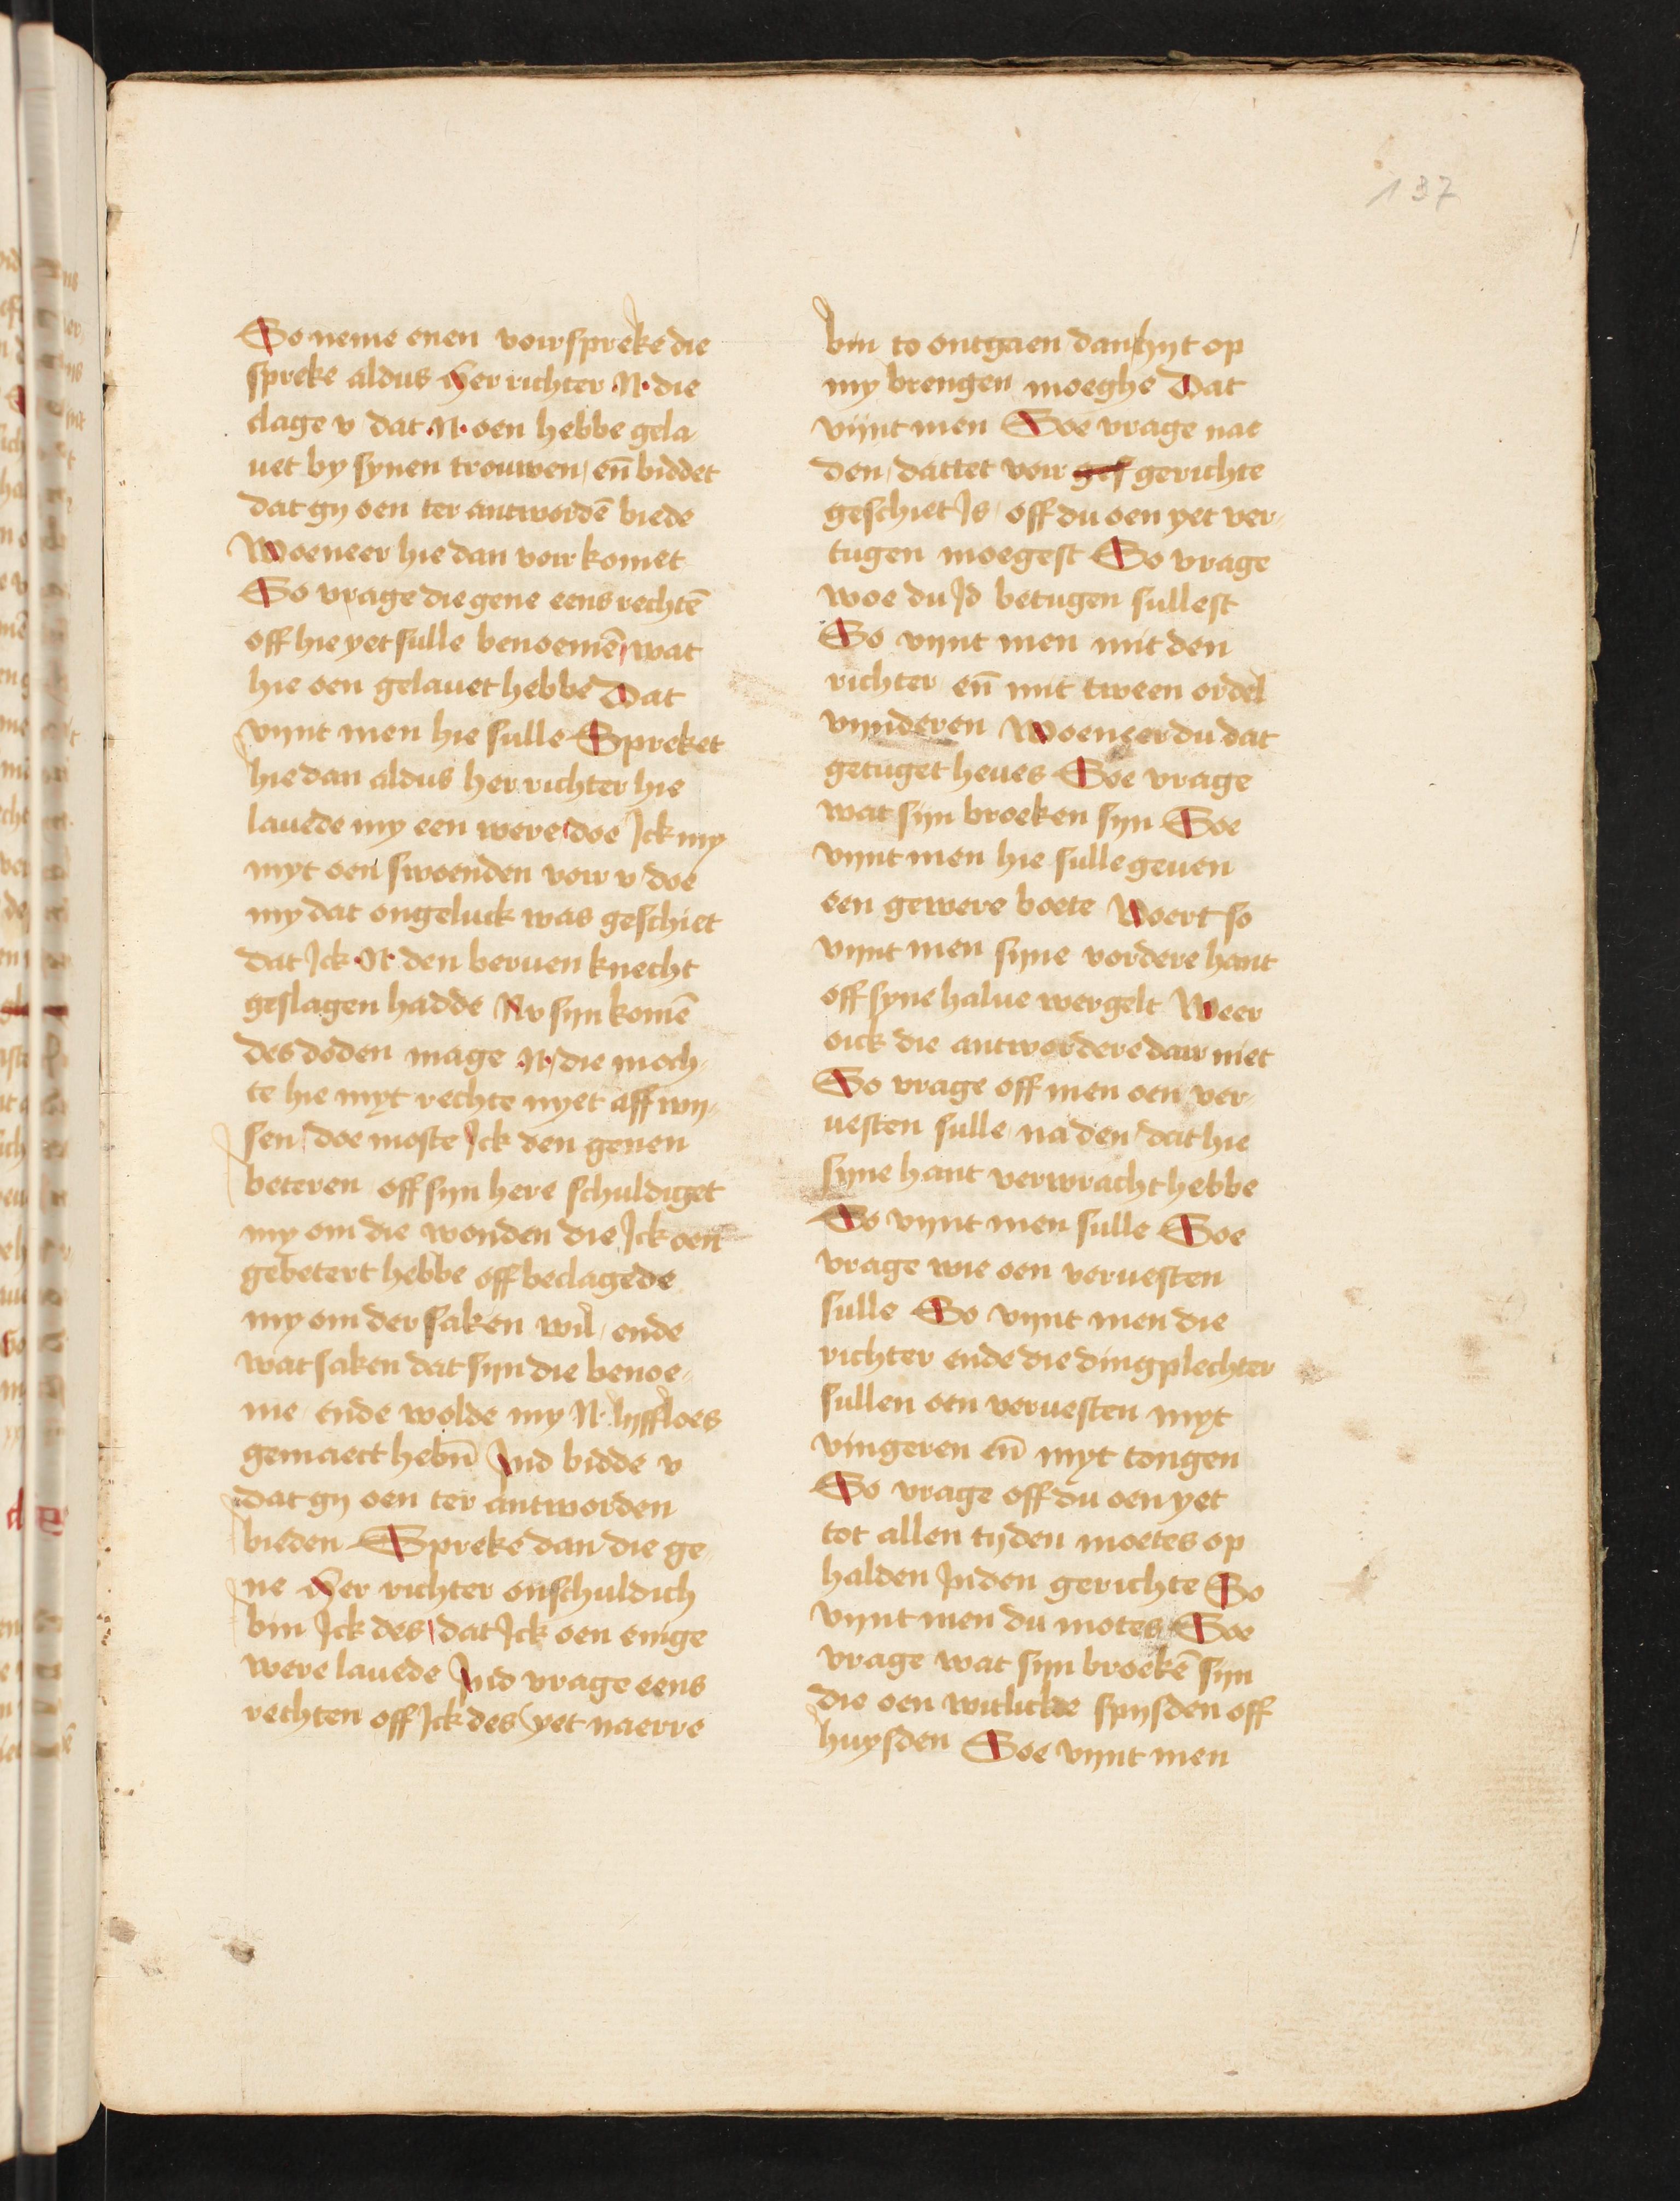 137
So neme enen voirspreke die
spreke aldus Her richter .N. die
clage v dat .N. oen hebbe gela
uet by synen trouwen / en̄ biddet
dat gy oen ter antwordē biede
Woeneer hie dan voir komet
So vrage die gene eens rechtē
off hie yet sulle benoemē / wat
hie oen gelauet hebbe Dat
vynt men hie sulle Spreket
hie dan aldus her richter hie
lauede my een were / doe Jck my
myt oen swoenden voir v / doe
my dat ongeluck was geschiet
dat Jck .N. den beruen knecht
geslagen hadde Nv syn komē
des doden mage .N. / die moch-
te hie myt rechte nyet aff wy-
sen / doe moste Jck den genen
beteren off syn here schuldiget
my om die wonden die Jck oen
gebetert hebbe off beclagede
my om der saken wil / ende
wat saken dat syn die benoe-
me / ende wolde my N. lyffloes
gemaect hebn̄ Jnd bidde v
dat gy oen ter antworden
bieden Spreke dan die ge-
ne Her richter onschuldich
bin Jck des / dat Jck oen enige
were lauede Jnd vrage eens
rechten off Jck des yet naerre
bin to ontgaen dan hyt op
my brengen moeghe Dat
vijnt men Soe vrage nae
den / dattet voir ges gerichte
geschiet Js / off du oen yet ver-
tugen moegest So vrage
woe du Jd betugen sullest
So vynt men mit den
richter en̄ mit tween ordel
vynderen Woeneer du dat
getuget heues Soe vrage
wat syn broeken syn Soe
vynt men hie sulle geuen
een gewere boete Woert so
vynt men syne vordere hant
off syne halue wergelt Weer
oick die antwordere dair niet
So vrage off men oen ver-
uesten sulle / na den / dat hie
syne hant verwracht hebbe
So vynt men sulle Soe
vrage wie oen veruesten
sulle So vynt men die
richter ende die dingplechter
sullen oen veruesten myt
vingeren en̄ myt tongen
So vrage off du oen yet
tot allen tyden moetes op
halden Jnden gerichte So
vynt men du motes Soe
vrage wat syn broekē syn
die oen witlickde spysden off
huysden Soe vynt men